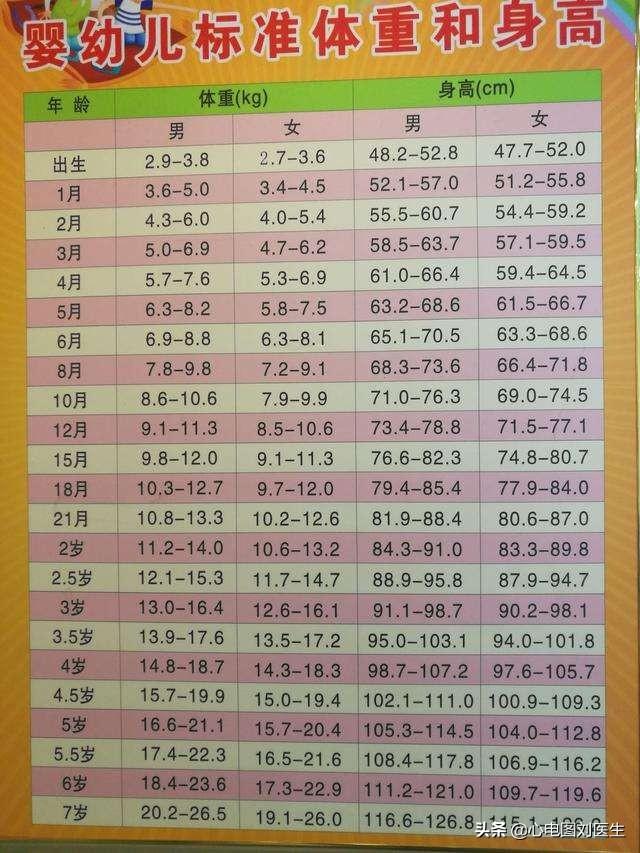 婴幼儿标准体重和身高
年 龄 体重(kg) 身高(cm)
男 女 男 女
出生 2.9-3.8 2.7-3.6 48.2-52.8 47.7-52.0
1月 3.6-5.0 3.4-4.5 52.1-57.0 51.2-55.8
2月 4.3-6.0 4.0-5.4 55.5-60.7 54.4-59.2
3月 5.0-6.9 4.7-6.2 58.5-63.7 57.1-59.5
4月 5.7-7.6 5.3-6.9 61.0-66.4 59.4-64.5
5月 6.3-8.2 5.8-7.5 63.2-68.6 61.5-66.7
6月 6.9-8.8 6.3-8.1 65.1-70.5 63.3-68.6
8月 7.8-9.8 7.2-9.1 68.3-73.6 66.4-71.8
10月 8.6-10.6 7.9-9.9 71.0-76.3 69.0-74.5
12月 9.1-11.3 8.5-10.6 73.4-78.8 71.5-77.1
15月 9.8-12.0 9.1-11.3 76.6-82.3 74.8-80.7
18月 10.3-12.7 9.7-12.0 79.4-85.4 77.9-84.0
21月 10.8-13.3 10.2-12.6 81.9-88.4 80.6-87.0
2岁 11.2-14.0 10.6-13.2 84.3-91.0 83.3-89.8
2.5岁 12.1-15.3 11.7-14.7 88.9-95.8 87.9-94.7
3岁 13.0-16.4 12.6-16.1 91.1-98.7 90.2-98.1
3.5岁 13.9-17.6 13.5-17.2 95.0-103.1 94.0-101.8
4岁 14.8-18.7 14.3-18.3 98.7-107.2 97.6-105.7
4.5岁 15.7-19.9 15.0-19.4 102.1-111.0 100.9-109.3
5岁 16.6-21.1 15.7-20.4 105.3-114.5 104.0-112.8
5.5岁 17.4-22.3 16.5-21.6 108.4-117.8 106.9-116.2
6岁 18.4-23.6 17.3-22.9 111.2-121.0 109.7-119.6
7岁 20.2-26.5 19.1-26.0 116.6-126.8
头条 @心电图刘医生